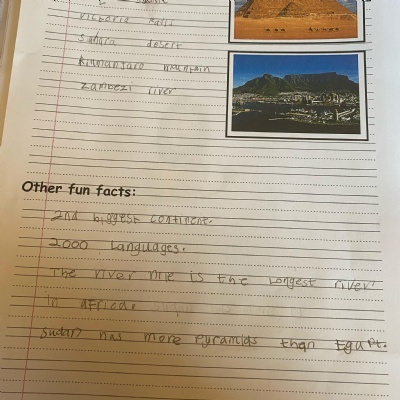 victoria Falls
Sahara desert
Kilimanjaro mountain
Zambezi river
Other fun facts:
2nd biggest continent.
2000 Languages.
The river nile is the Longest river
in africa.
Sudan has more pyramids than Egypt.